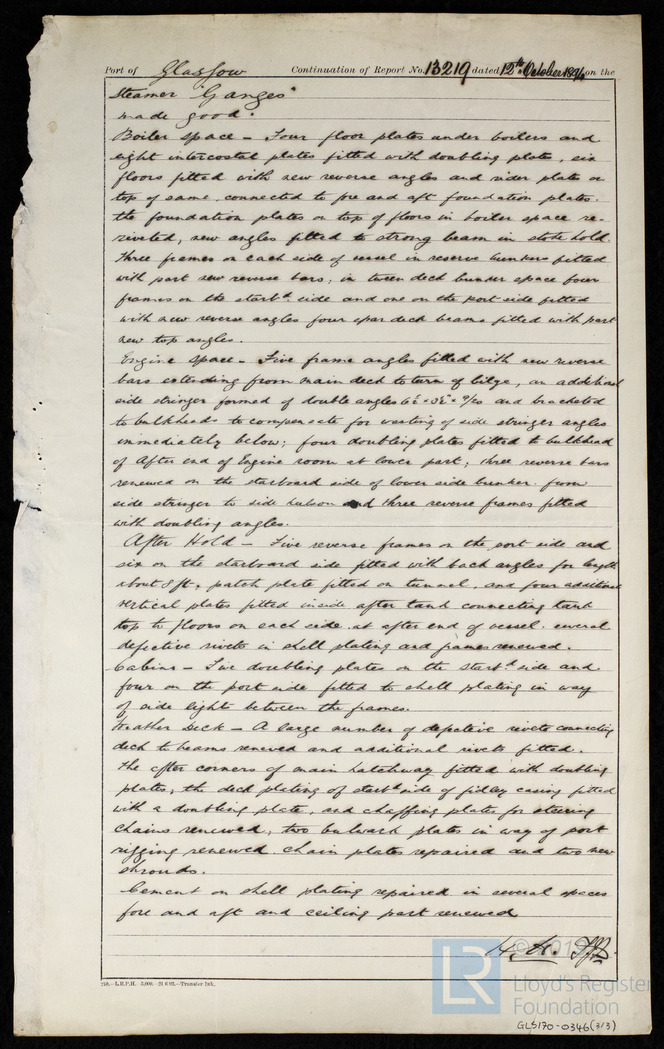 Port of Glasgow Continuation of Report No. 13219 dated 12th October 1894 on the
Steamer "Ganges"
made good.
Boiler space - Four floor plates under boilers and
eight intercostal plates fitted with doubling plates, six
floors fitted with new reverse angles and rider plate on
top of same connected to fore and aft foundation plates.
the foundation plates on top of floors in boiler space re-
riveted, new angles fitted to strong beam in stoke hold.
Three frames on each side of vessel in reserve bunkers fitted
with part new reverse bars; in tween deck bunker space four
frames on the starbd side and one on the port side fitted
with new reverse angles four spar deck beams fitted with part
new top angles.
Engine space - Five frame angles fitted with new reverse
bars extending from main deck to turn of bilge, an additional
side stringer formed of double angles and bracketed
to bulkheads to compensate for wasting of side stringer angles
immediately below; four doubling plates fitted to bulkhead
of After end of Engine room at lower part; three reverse bars
renewed on the starboard side of lower side bunker from
side stringer to side and three reverse frames fitted
with doubling angles.
After Hold - Five reverse frames on the port side and
six on the starboard side fitted with back angles for length
about 8 ft. patch plate fitted on tunnel, and four additional
vertical plates fitted inside after tank connecting tank
top to floors on each side at after end of vessel. several
defective rivets in shell plating and frames renewed.
Cabins - Five doubling plates on the starbd side and
four on the port side fitted to shell plating in way
of side light between the frames.
Weather Deck - A large number of defective rivets connecting
deck to beams renewed and additional rivets fitted.
The after corners of main hatchway fitted with doubling
plates, the deck plating of starbd side of fidley casing fitted
with a doubling plate, and chaffing plates for steering
chains renewed, two bulwark plates in way of port
rigging renewed. chain plates repaired and two new
shrouds.
Cement on shell plating repaired in several spaces
fore and aft and ceiling part renewed
H. H.
© 2019
LR Lloyd's Register
Foundation
L.R.P.H. 5,000. Transfer Ink.
GLS170-0346(3/3)